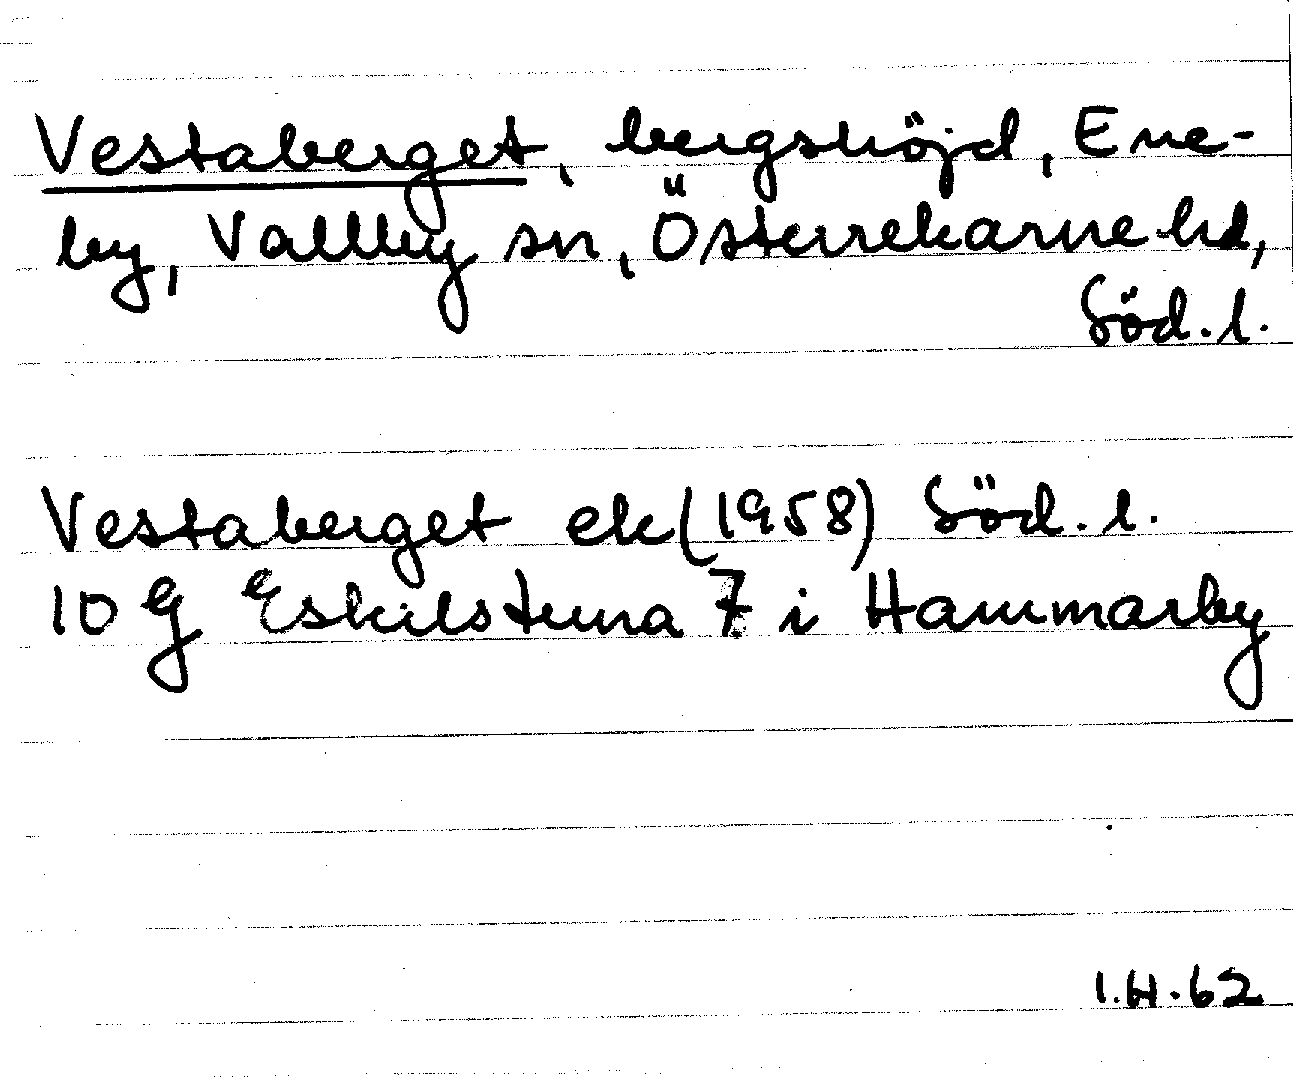 Vestaberget, bergshöjd, Ene-
by, Vallby sn, Österrekarne hd,
Söd.l.
Vestaberget ek(1958) Söd.l.
10 G Eskilstuna 7 i Hammarby
I.H.62